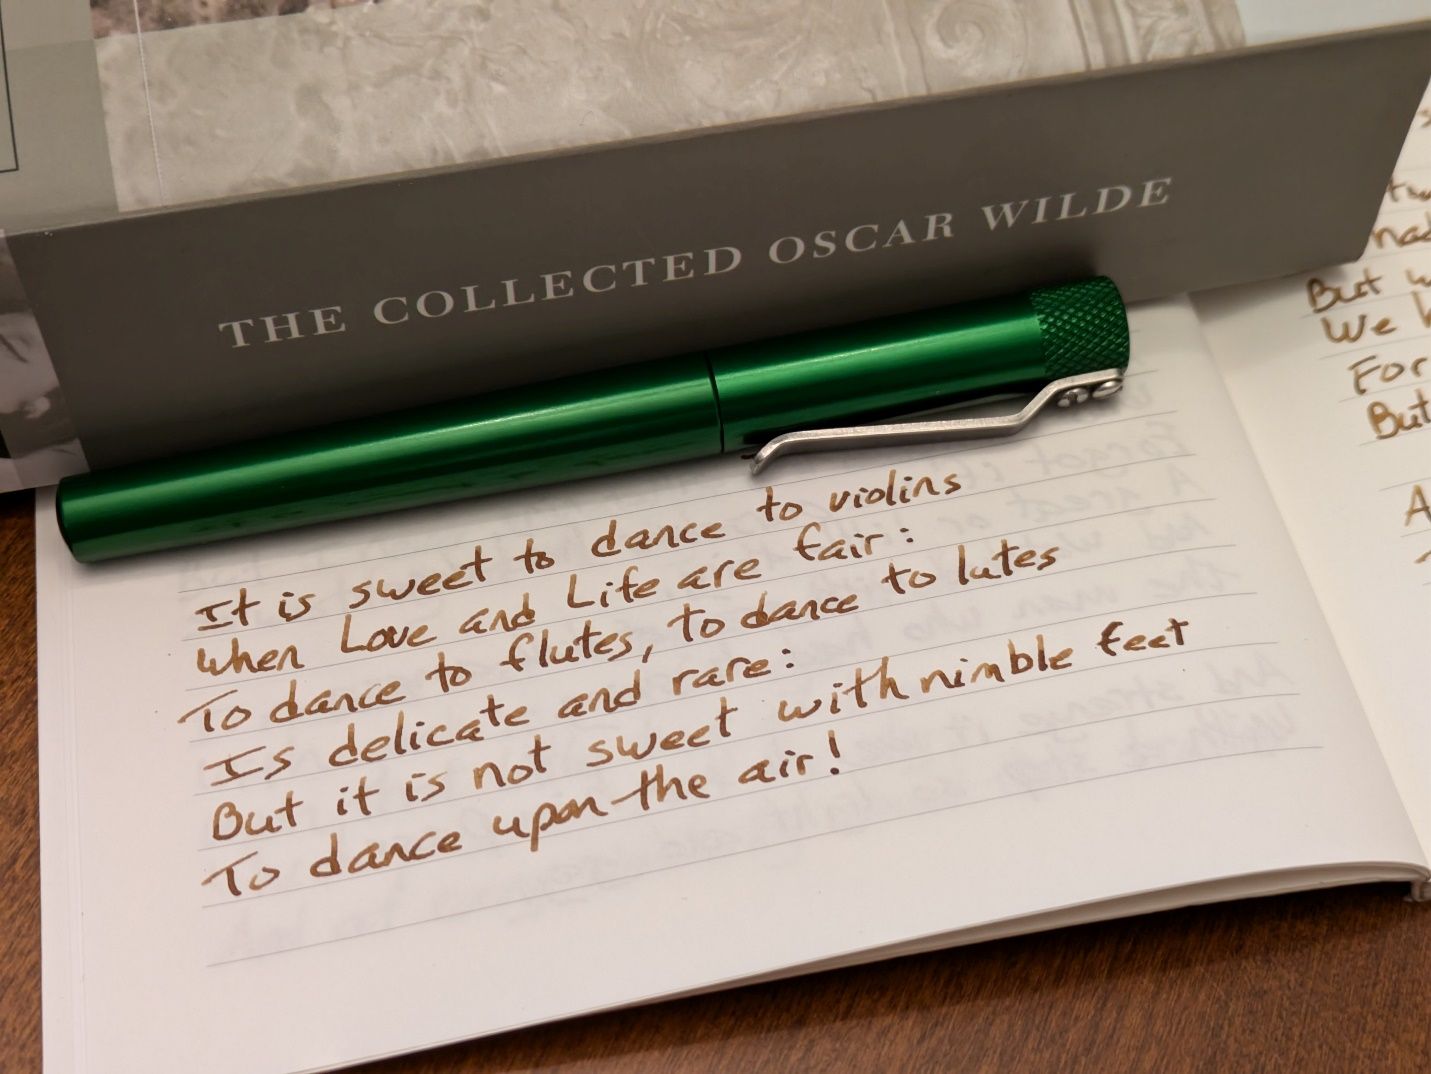 THE COLLECTED OSCAR WILDE
It is sweet to dance to violins
When Love and Life are fair:
To dance to flutes, to dance to lutes
Is delicate and rare:
But it is not sweet with nimble feet
To dance upon the air!
But
We
For
But